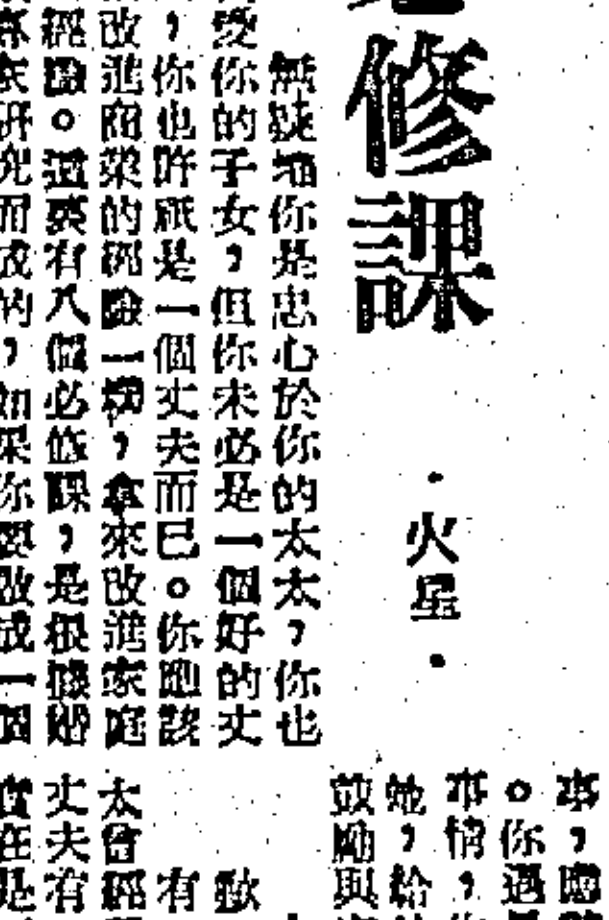 修課
·火星·
無疑地你是忠心於你的太太,你也
愛你的子女,但你未必是一個好的丈
,你也許祇是一個丈夫而已。你應該
改進商業的經驗一樣,拿來改進家庭
經驗。這裏有八個必修課,是根據婚
家研究而成的,如果你要做成一個
事,
。你遇
事情,
她,給
鼓勵與
歡
有
太曾經
丈夫有
實在是